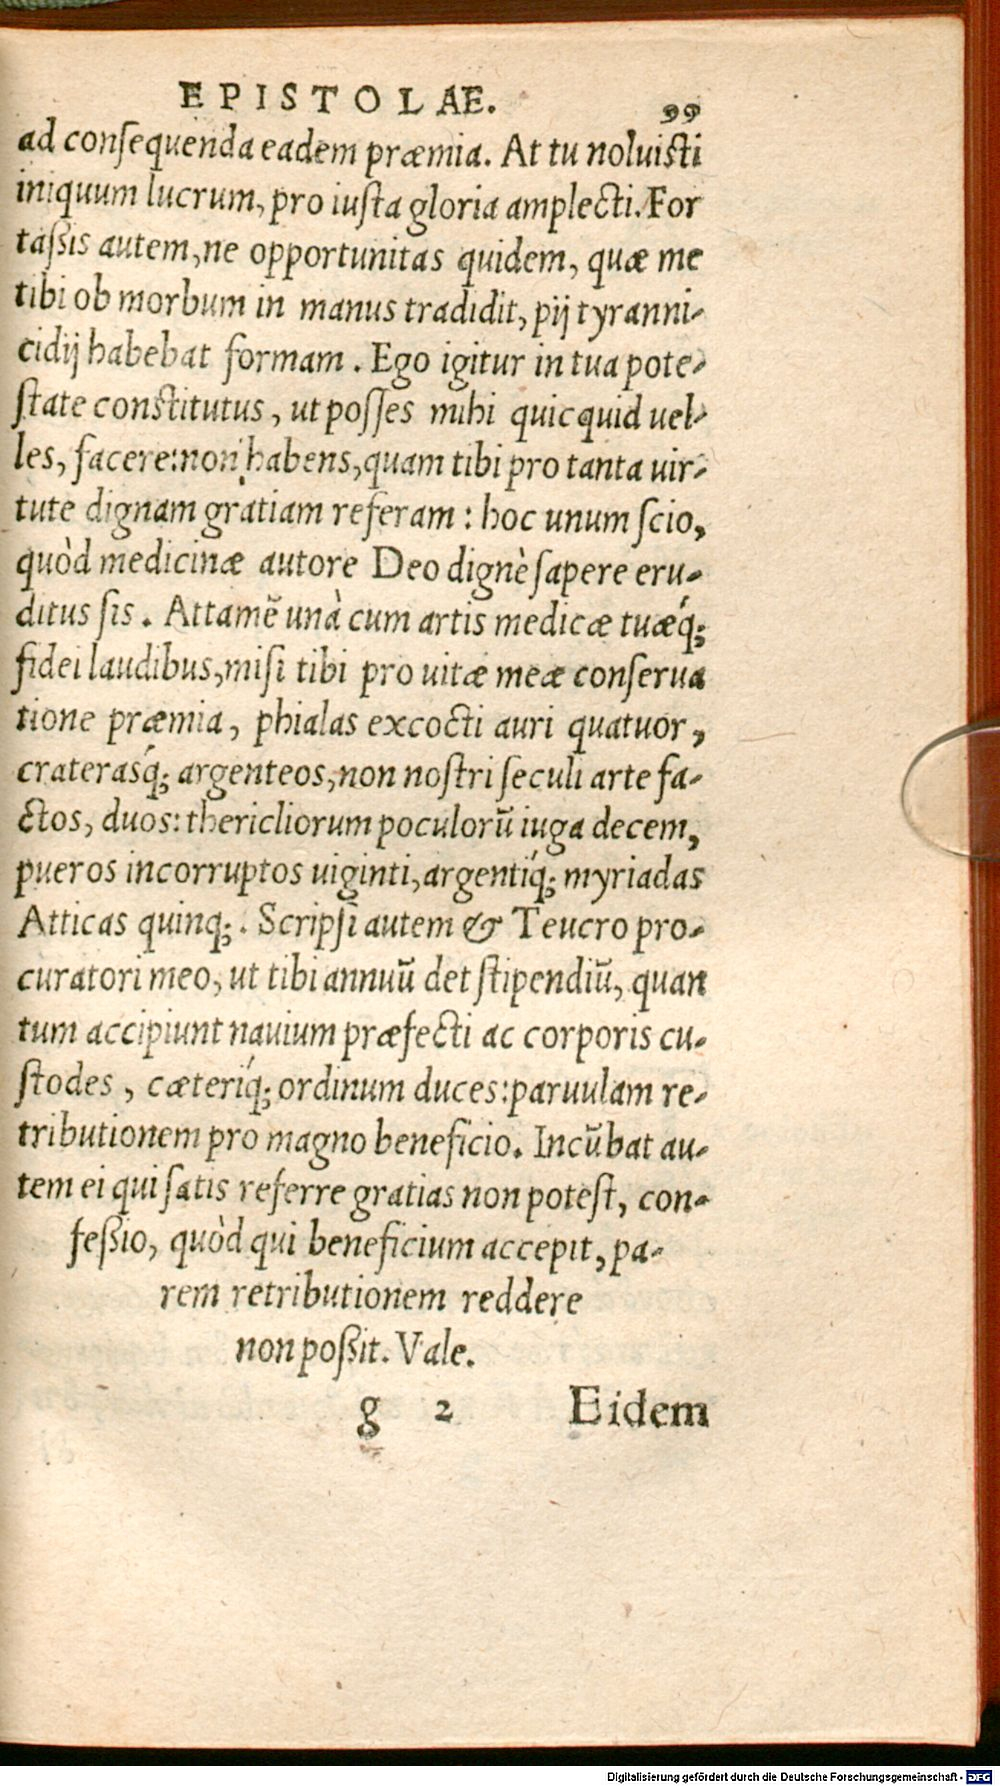 EPISTOLAE. 99
ad conſequenda eadem præmia. At tu noluiſti
iniquum lucrum, pro iuſta gloria amplecti. For
taſsis autem, ne opportunitas quidem, quæ me
tibi ob morbum in manus tradidit, pij tyranni-
cidij habebat formam. Ego igitur in tua pote-
ſtate conſtitutus, ut poſſes mihi quicquid uel-
les, facere: non habens, quam tibi pro tanta uir-
tute dignam gratiam referam: hoc unum ſcio,
quòd medicinæ autore Deo dignè ſapere eru-
ditus ſis. Attamẽ unà cum artis medicæ tuæq́;
fidei laudibus, miſi tibi pro uitæ meæ conſerua
tione præmia, phialas excocti auri quatuor,
craterasq́; argenteos, non noſtri ſeculi arte fa-
ctos, duos: thericliorum poculorũ iuga decem,
pueros incorruptos uiginti, argentiq́; myriadas
Atticas quinq;. Scripſi autem & Teucro pro-
curatori meo, ut tibi annuũ det ſtipendiũ, quan
tum accipiunt nauium præfecti ac corporis cu-
ſtodes, cæteriq́; ordinum duces: paruulam re-
tributionem pro magno beneficio. Incũbat au-
tem ei qui ſatis referre gratias non poteſt, con-
feſsio, quòd qui beneficium accepit, pa-
rem retributionem reddere
non poſsit. Vale.
g 2 Eidem
Digitalisierung gefördert durch die Deutsche Forschungsgemeinschaft - DFG